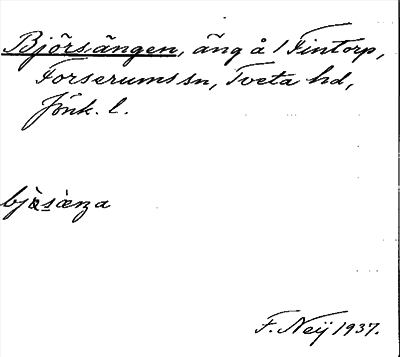 Björsängen, äng å 1 Fintorp,
Forserums sn, Tveta hd,
Jönk. l.
bjö̀sæ̀ŋa
F. Neij 1937.